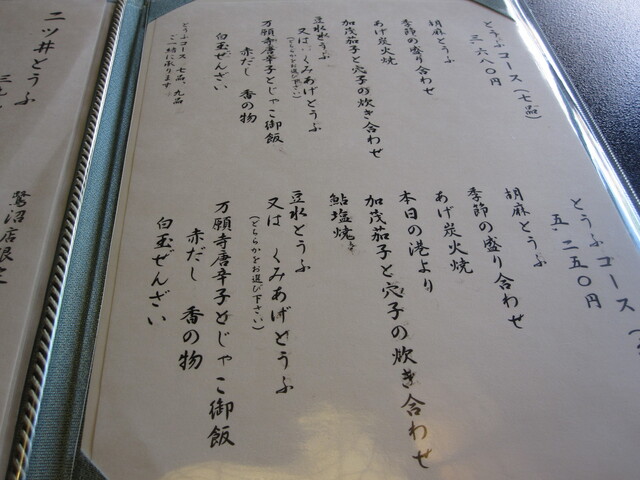 とうふコース（七品）
三・六八〇円
胡麻とうふ
季節の盛り合わせ
あげ炭火焼
加茂茄子と穴子の炊き合わせ
豆水とうふ
又は くみあげとうふ
（どちらかをお選び下さい）
万願寺唐辛子とじゃこ御飯
赤だし 香の物
白玉ぜんざい
とうふコース 七品、九品
ご一緒に承ります
とうふコース
五・二五〇円
胡麻とうふ
季節の盛り合わせ
あげ炭火焼
本日の港より
加茂茄子と穴子の炊き合わせ
鮎塩焼き
豆水とうふ
又は くみあげとうふ
（どちらかをお選び下さい）
万願寺唐辛子とじゃこ御飯
赤だし 香の物
白玉ぜんざい
二ツ井とうふ
鷺沼店限定